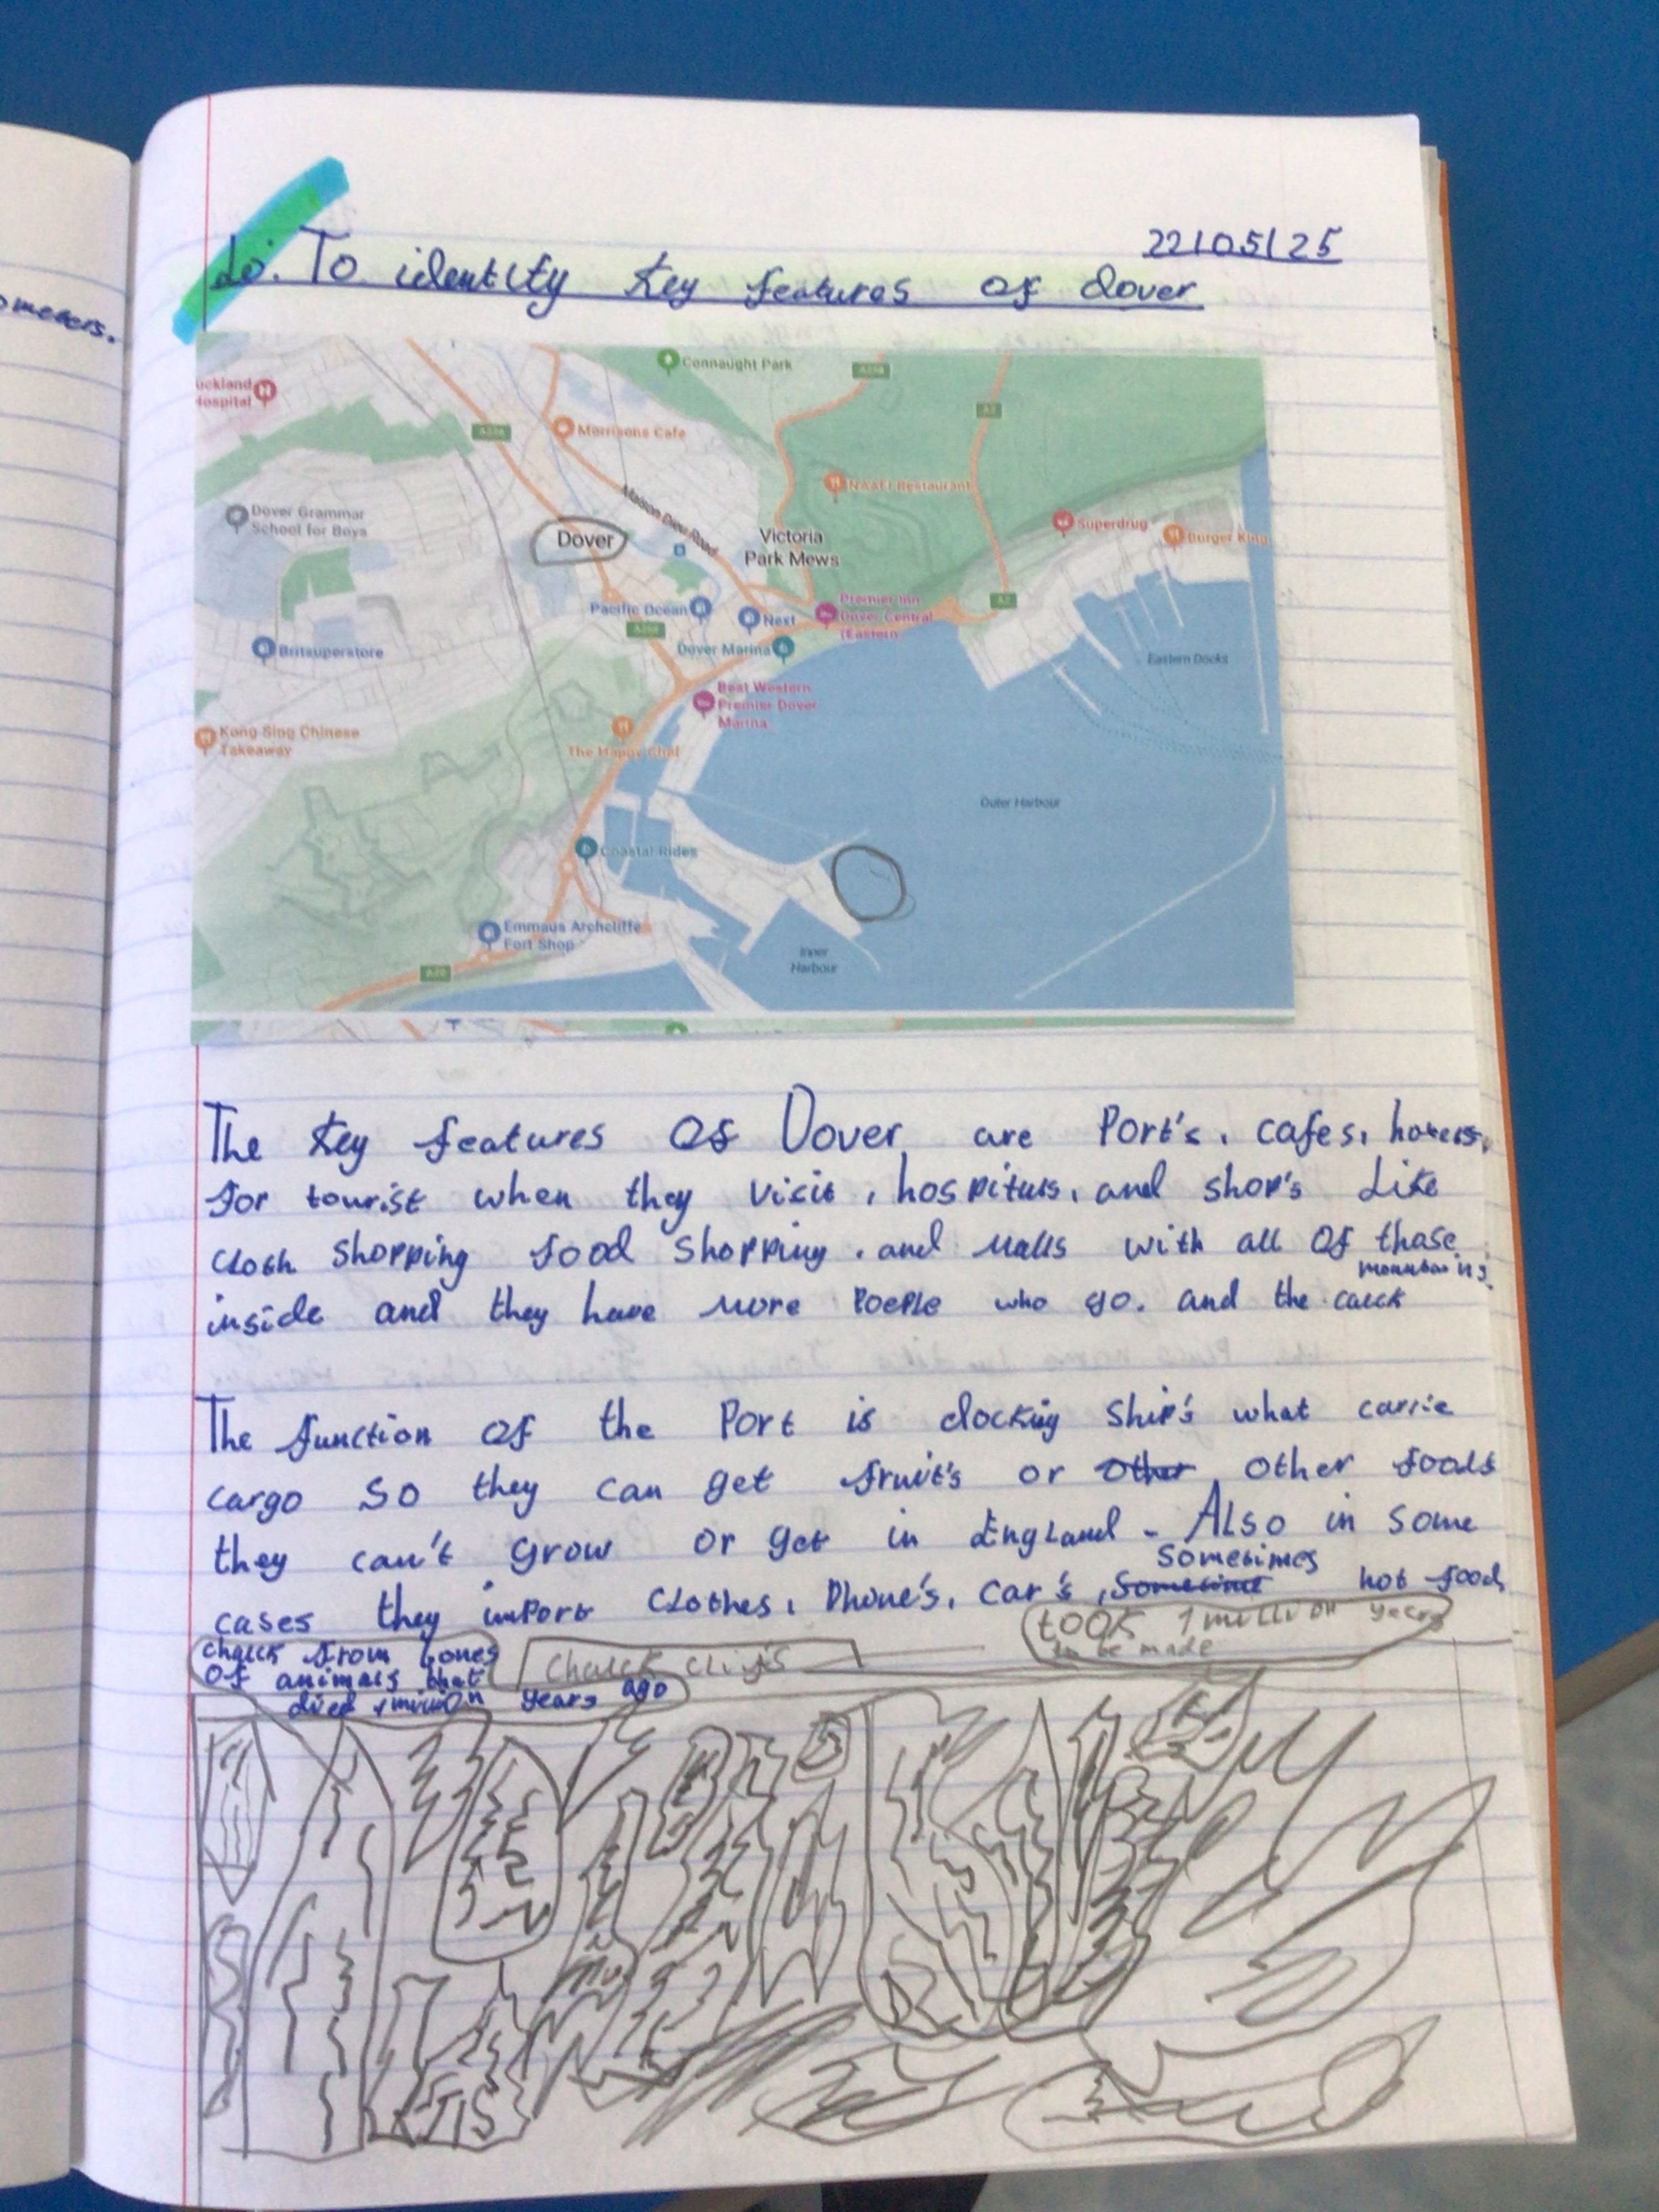 ometers.
22/05/25
Lo: To identify key features of dover
Connaught Park
uckland
Hospital
Morrisons Cafe
NAAFI Restaurant
Dover Grammar
School for Boys
Maison Dieu Road
Dover
Victoria
Park Mews
Superdrug
Burger King
Pacific Ocean
Next
Premier Inn
Dover Central
(Eastern
A2
A2
Britsuperstore
Dover Marina
Eastern Docks
Best Western
Premier Dover
Marina
Kong Sing Chinese
Takeaway
The Happy Chef
Outer Harbour
Coastal Rides
Emmaus Archcliffe
Fort Shop
A20
Inner
Harbour
The key features of Dover are Port's, cafes, hotels,
for tourist when they visit, hospitals, and shop's like
cloth shopping food shopping. and malls with all of those
inside and they have more poeple who go. and the
The function of the Port is docking ship's what carrie
cargo so they can get fruit's or other other foods
they can't grow or get in England. Also in some
sometimes
cases they import clothes, Phone's, car's, sometime hot food
chalck from bones
of animals that
died 1 million years ago
Chalck clifs
took 1 million years
to be made